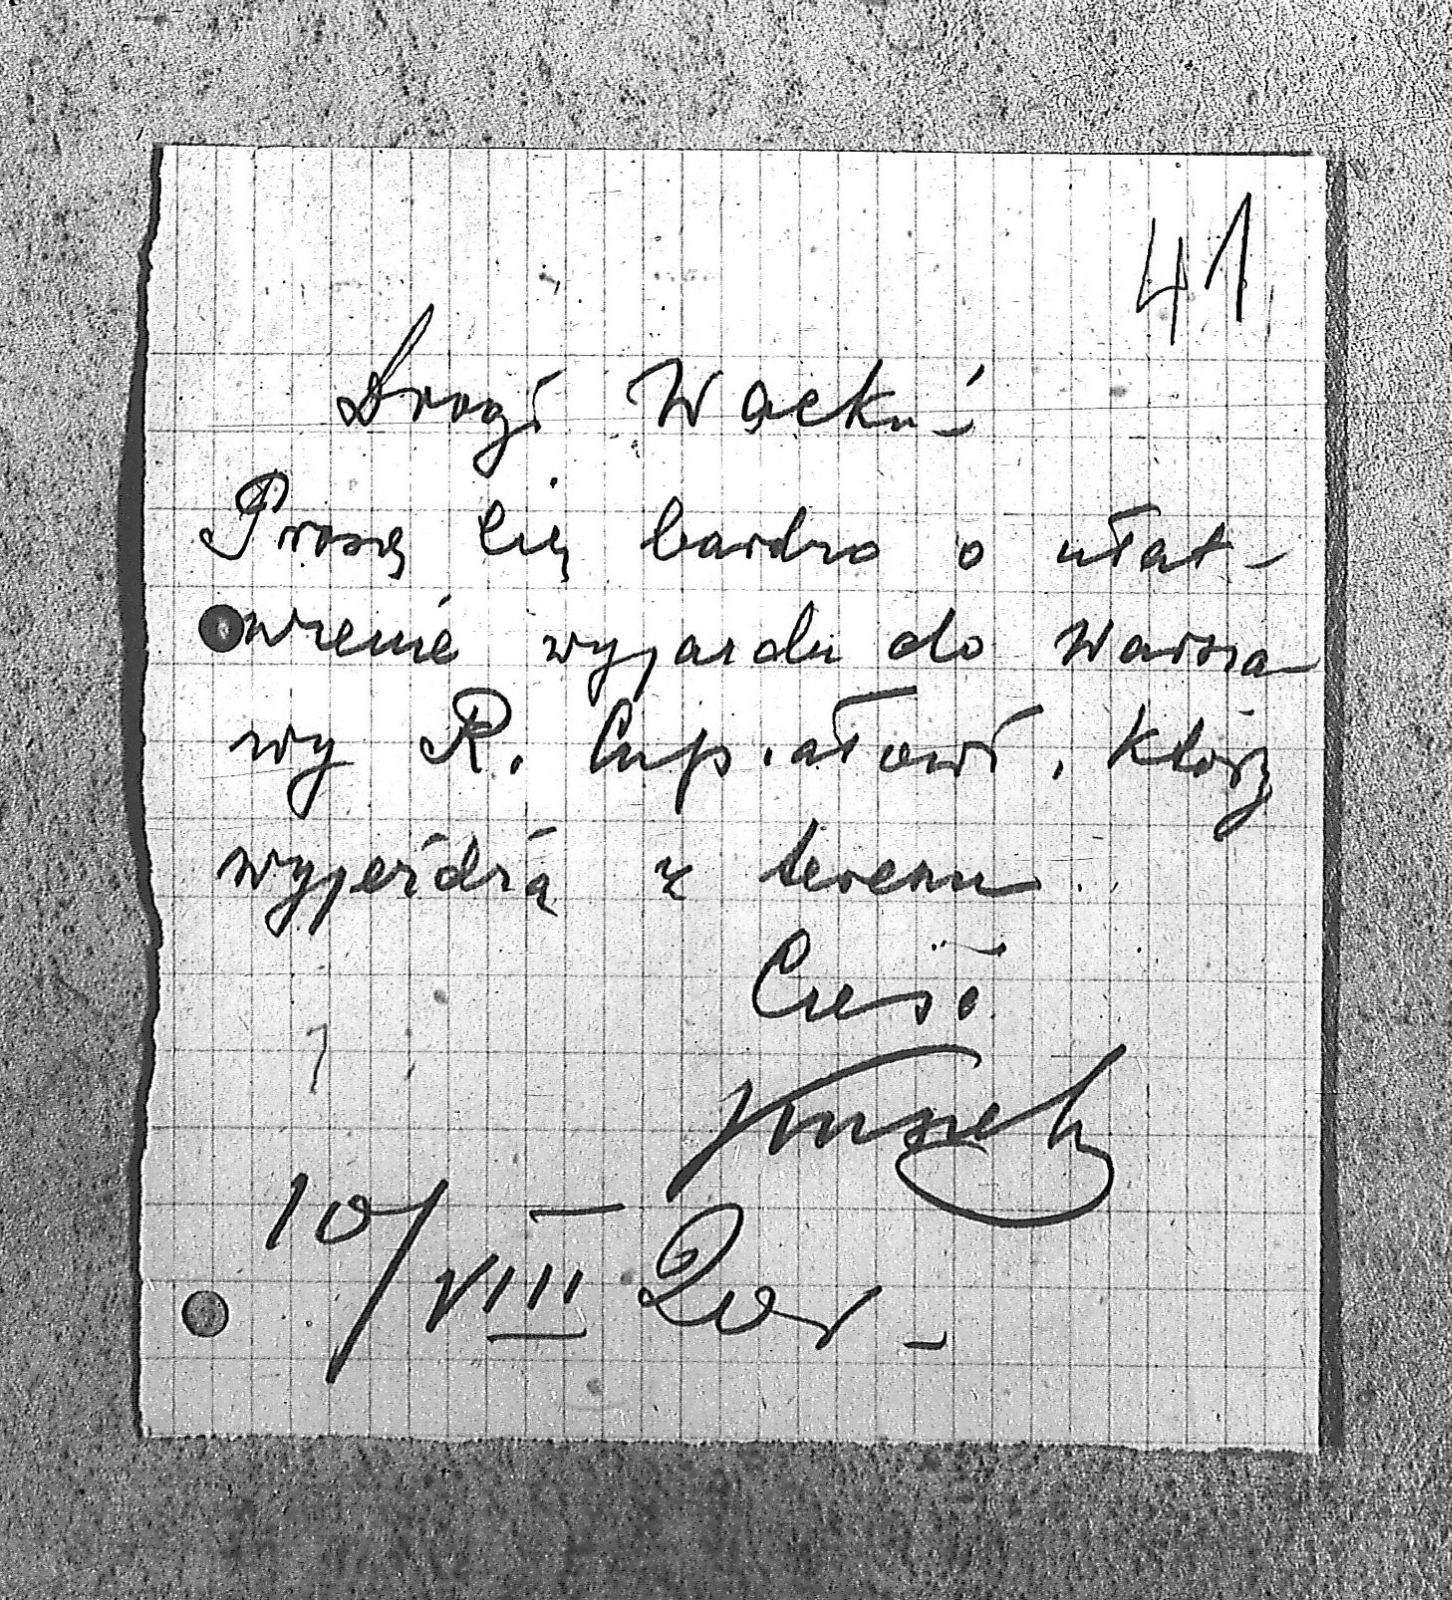 41
Drogi Wacku –
Proszę Cię bardzo o ułat-
wienie wyjazdu do Warsza-
wy R. Cup.ałowi, który
wyjeżdża z terenu
Cześć
10/VIII 20 r. –